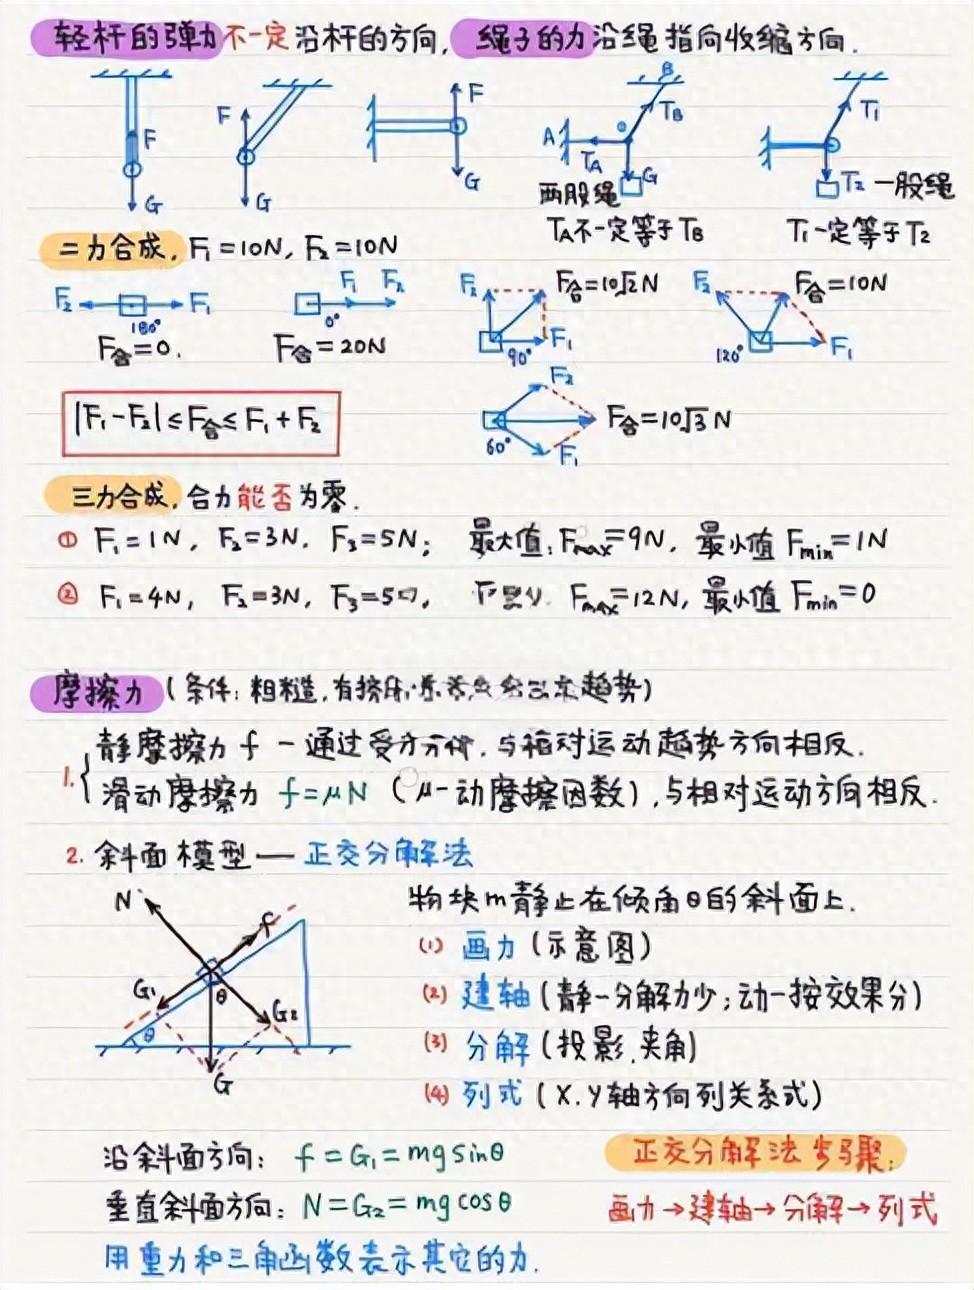 轻杆的弹力不一定沿杆的方向, 绳子的力沿绳指向收缩方向.
F
G
F
G
F
G
A
B
T_A
T_B
G
两股绳
T_A不一定等于T_B
T₁
T₂ 一股绳
T₁一定等于T₂
二力合成, F₁=10N, F₂=10N
F₂ F₁
180°
F合=0.
F₁ F₂
0°
F合=20N
F₂ F合=10√2N
F₁
90°
F₂ F合=10N
120° F₁
|F₁-F₂|≤F合≤F₁+F₂
F₂
F合=10√3N
60°
F₁
三力合成, 合力能否为零.
① F₁=1N, F₂=3N, F₃=5N; 最大值: Fmax=9N, 最小值 Fmin=1N
② F₁=4N, F₂=3N, F₃=5 Fmax=12N, 最小值 Fmin=0
摩擦力 (条件: 粗糙, 有 趋势)
1. 静摩擦力 f — 通过受力 与相对运动趋势方向相反.
滑动摩擦力 f=μN (μ-动摩擦因数), 与相对运动方向相反.
2. 斜面模型 — 正交分解法
N
f
G₁
θ
G₂
θ
G
物块m静止在倾角θ的斜面上.
(1) 画力 (示意图)
(2) 建轴 (静—分解力少; 动—按效果分)
(3) 分解 (投影, 夹角)
(4) 列式 (X.Y轴方向列关系式)
沿斜面方向: f=G₁=mgsinθ
垂直斜面方向: N=G₂=mgcosθ
用重力和三角函数表示其它的力.
正交分解法步骤:
画力→建轴→分解→列式